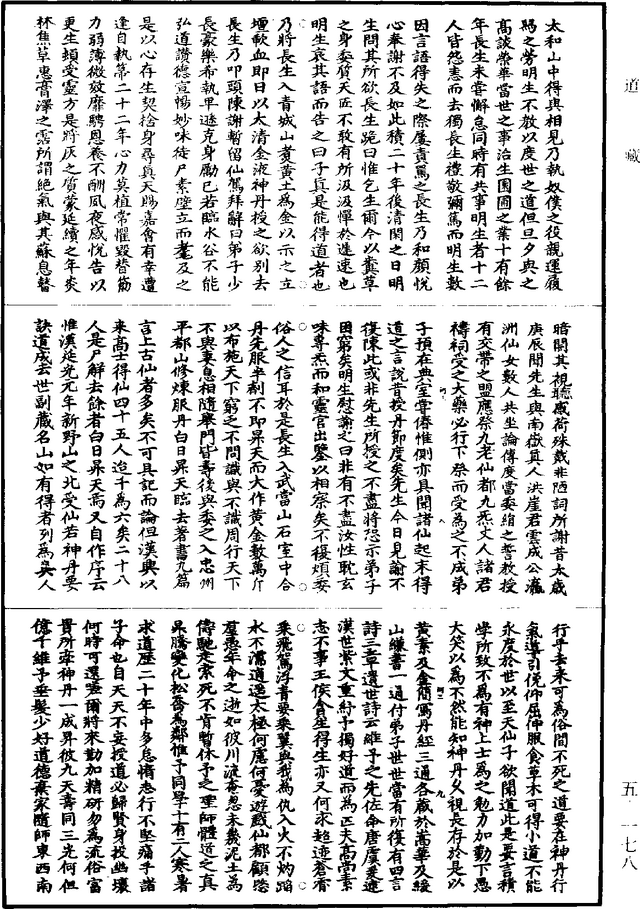 道藏
太和山中得與相見乃執奴僕之役親運履
舄之勞明生不教以度世之道但旦夕與之
高談榮華當世之事治生園圃之業十有餘
年長生未嘗懈怠同時有共事明生者十二
人皆怨恚而去獨長生禮敬彌篤而明生數
因言語得失之際屢責罵之長生乃和顏悅
心奉謝不及如此積二十年後清閑之日明
生問其所欲長生跪曰惟乞生爾今以糞草
之身委質天匠不敢有所汲汲憚於遲速也
明生哀其語而告之曰子真是能得道者也
乃將長生入青城山煑黃土為金以示之立
壇歃血即日以太清金液神丹授之欲別去
長生乃叩頭陳謝暫留仙駕拜辭曰弟子少
長豪樂希執卑遜克身勵己若臨水谷不能
弘道讚德宣暢妙味徒尸素壁立而耄及之
是以心存生契捨身尋真天賜嘉會有幸遭
逢自執箒二十二年心力莫植常懼毀替筋
力弱薄微效靡騁恩養不酬夙夜感悅告以
更生頓受靈方是將灰之質蒙延續之年炎
林焦草惠膏澤之霑所謂絕氣與其蘇息瞽
暗開其視聽感荷殊戴非陋詞所謝昔太歲
庚辰聞先生與南嶽真人洪崖君雲成公瀛
洲仙女數人共坐論傳度當委絹之誓教授
有交帶之盟應祭九老仙都九炁丈人諸君
禱祠受之大藥必行下祭而受為之不成弟
子預在典室嘗侍帷側亦具聞諸仙起末得
道之言說昔授丹節度矣先生今日見諭不
復陳此或非先生所授之不盡將恐示弟子
困窮矣明生慰諭之曰非有不盡汝性耽玄
味專炁而和靈官出鑒以相察矣不復煩委
俗人之信耳於是長生入武當山石室中合
丹先服半劑不即昇天而大作黃金數萬斤
以布施天下窮乏不問識與不識周行天下
不與妻息相隨舉門皆壽後與委之入忠州
平都山修煉服丹白日昇天臨去著書九篇
言上古仙者多矣不可具記而論但漢興以
來高士得仙四十五人迨千為六矣二十八
人是尸解去餘者白日昇天焉又自作序云
惟漢延光元年新野山之北受仙君神丹要
訣道成去世副藏名山如有得者列為真人
行乎去來何為俗間不死之道要在神丹行
氣導引俛仰屈伸服食草木可得小道不能
永度於世以至天仙子欲聞道此是要言積
學所致不為有神上士為之勉力加勤下愚
大笑以為不然能知神丹久視長存於是以
黃素及金簡寫丹經三通各藏於嵩華及綏
山緘書一通付弟子世世當有所復有四言
詩三章遺世詩云維予之先佐命唐虞爰逮
漢世紫文重紆予獨好道而為匹夫高尚素
志不事王侯貪生得生亦又何求超迹蒼霄
乘飛駕浮青要乘翼與我為仇入火不灼蹈
水不濡逍遙太極何慮何憂遊戲仙都顧愍
羣愚年命之逝如彼川流奄忽未幾泥土為
儔馳走索死不肯暫休予之聖師體道之真
昇騰變化松喬為鄰惟予同學十有二人寒暑
求道歷二十年中多怠惰志行不堅痛乎諸
子命也自天天不妄授道必歸賢身投幽壤
何時可還嗟爾將來勤加精研勿為流俗富
貴所牽神丹一成昇彼九天壽同三光何但
億千維予垂髮少好道德棄家隨師東西南
五一七八